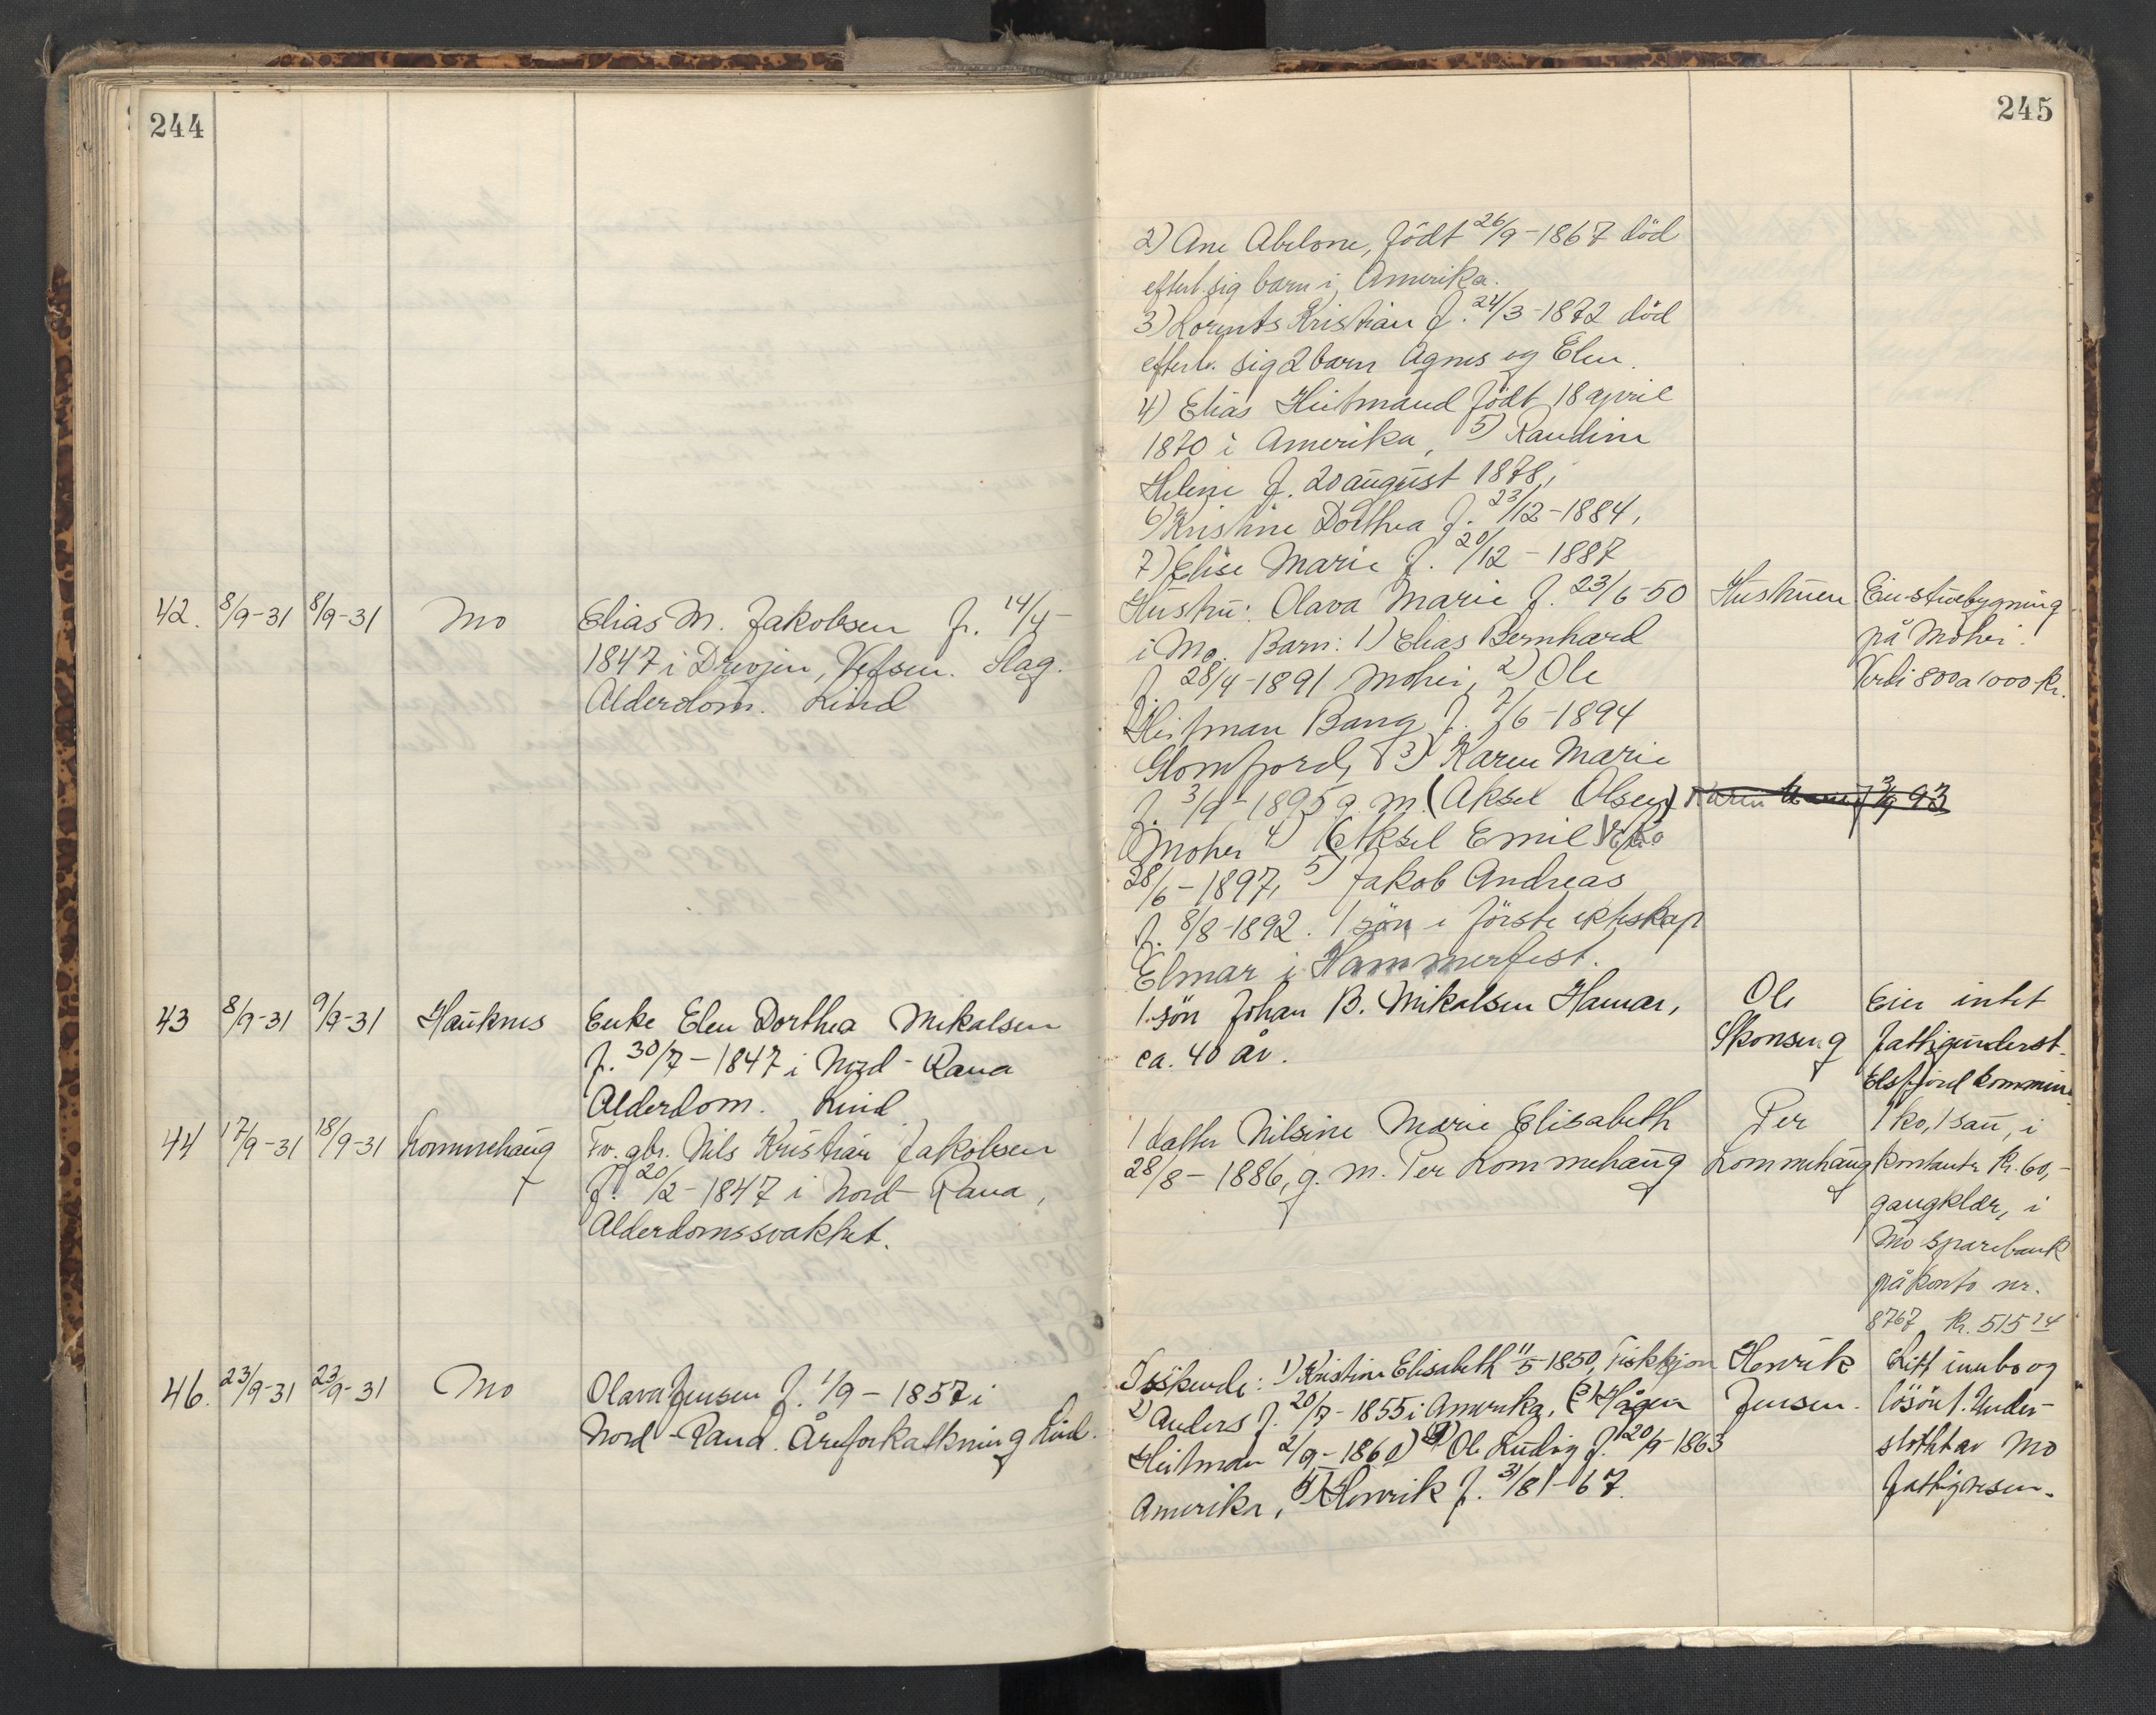 244
245
2) Ane Abelone, født 26/9-1867 död
efterl. sig barn i Amerika.
3) Lorents Kristian f. 24/3-1872 död
efterl. sig 2 barn Agnes og Elen.
4) Elias Heitmand födt 18 april
1870 i Amerika, 5) Raudine
Helene f. 20 august 1878,
6) Kristine Dorthea f. 23/12-1884,
7) Elise Marie f. 20/12-1887
42. 8/9-31 8/9-31 Mo Elias M. Jakobsen f. 14/4-
1847 i Drevjen, Vefsen. Slag.
Alderdom. Lind
Hustru: Olava Marie f. 23/6-50
i Mo. Barn: 1) Elias Bernhard
f. 28/4-1891 Mohei, 2) Ole
Heitman Bang f. 7/6-1894
Glomfjord, 3) Karen Marie
f. 3/9-1895 g. m. (Aksel Olsen)
Mohei 4) Aksel Emil
28/6-1897, 5) Jakob Andreas
f. 8/8-1892. 1 sön i förste ekteskap
Elmar i Hammerfest.
Hustruen
Karen Marie f 3/9 93
Ein stuebygning
på Mohei.
Verdi 800 a 1000 kr.
43 8/9-31 9/9-31 Hauknes Enke Elen Dorthea Mikalsen
f. 30/7-1847 i Nord-Rana
Alderdom. Lind
1 sön Johan B. Mikalsen Hamar,
ca. 40 år.
Ole
Skonseng
Eier intet
Fattigunderst.
Elsfjord kommun.
44 17/9-31 18/9-31 Lommehaug Fv. gbr. Nils Kristian Jakobsen
f. 20/2-1847 i Nord-Rana,
Alderdomssvakhet.
1 datter Nilsine Marie Elisabeth
28/8-1886, g. m. Per Lommehaug
Per
Lommehaug
1 ko, 1 sau, i
kontante kr. 60,-
gangklær, i
Mo sparebank
på konto nr.
8767 kr. 515 14
46. 23/9-31 23/9-31 Mo Olava Jensen f. 1/9-1857 i
Nord-Rana. Åreforkalkning Lind.
5 söskende: 1) Kristine Elisabeth 11/5-1850, Fiskkjon
2) Anders f. 20/7-1855 i Amerika, 3) Hågen
Heitman 2/9-1860) 4) Ole Ludvig f. 20/9-1863
Amerika, 5) Henrik f. 31/8-67.
Henrik
Jensen.
Litt innbo og
lösöre. Under-
stöttet av Mo
fattigvesen.